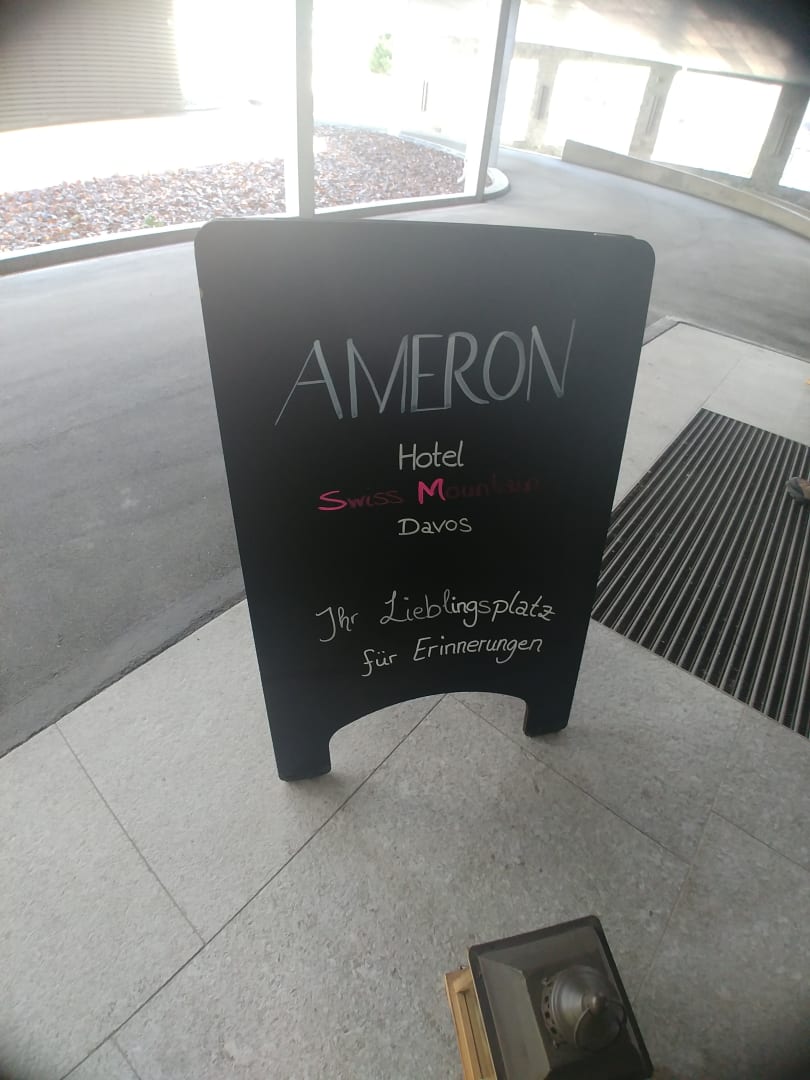 AMERON
Hotel
Swiss Mountain
Davos
Ihr Lieblingsplatz
für Erinnerungen